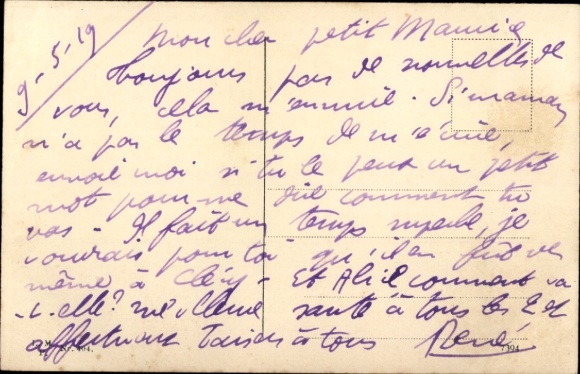 9-5-19
Mon cher petit Maurice
Toujours pas de nouvelles de
vous, cela m'ennuie. Si maman
n'a pas le temps de m'écrire,
envoie moi si tu le peux un petit
mot pour me dire comment tu
vas - Il fait un temps superbe, je
voudrais pour toi qu'il en fût de
même à Cléry - Et Alice comment va
-t-elle? meilleure santé à tous les 2 et
affectueux baisers à tous René
Nr. 394.
7394